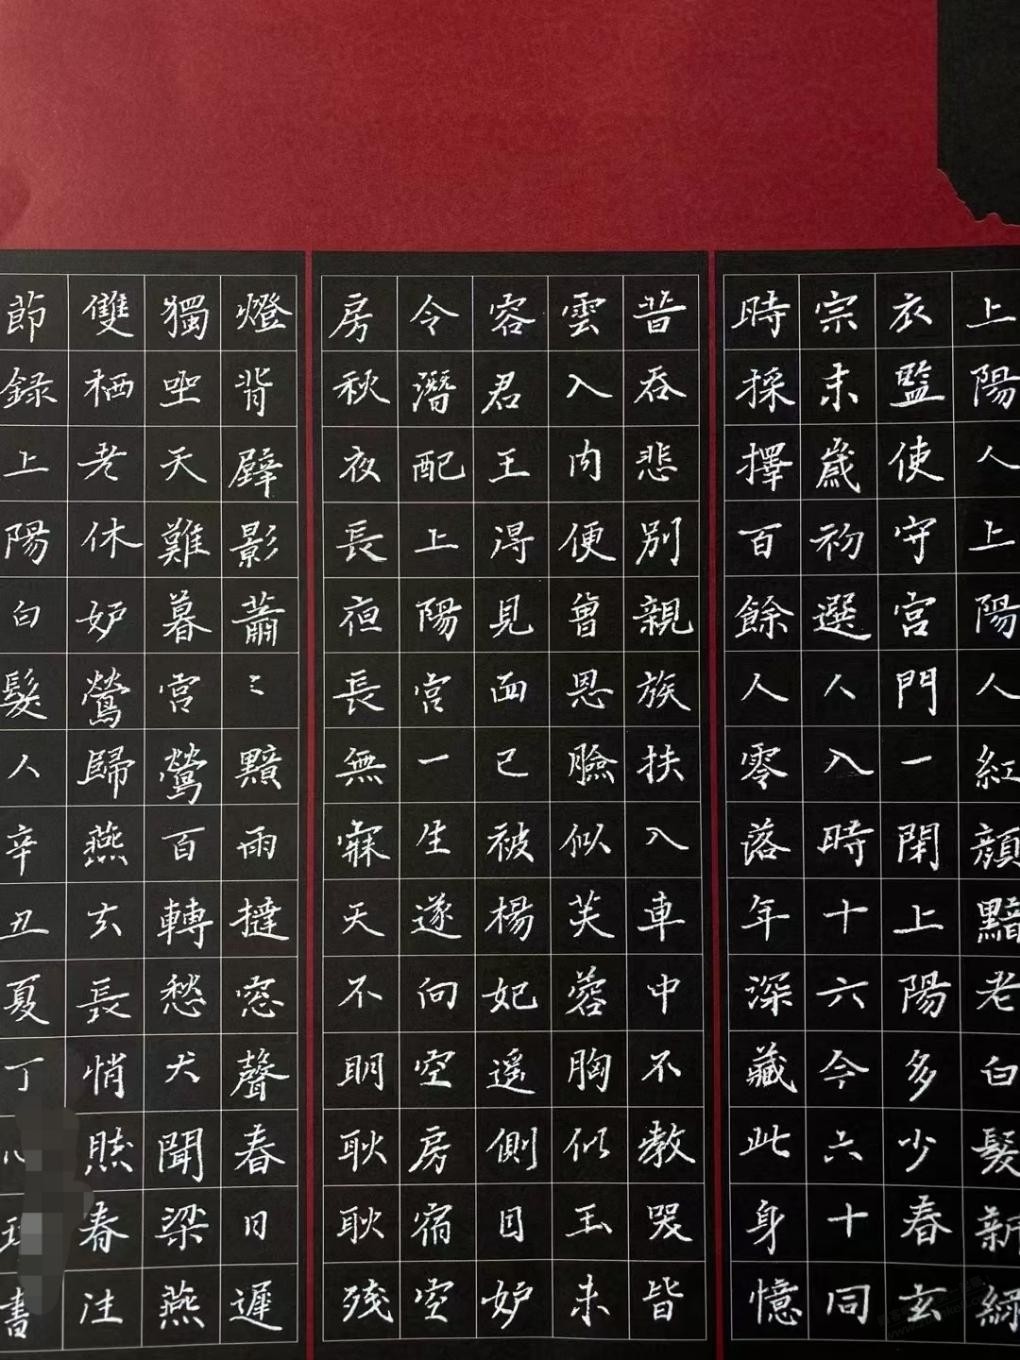 上陽人上陽人紅顔黯老白髮新綠
衣監使守宮門一閉上陽多少春玄
宗末歲初選人入時十六今六十同
時採擇百餘人零落年深藏此身憶
昔吞悲別親族扶入車中不教哭皆
雲入内便曾恩臉似芙蓉胸似玉未
容君王得見面已被楊妃遙側目妒
令潛配上陽宮一生遂向空房宿空
房秋夜長夜長無寐天不明耿耿殘
燈背壁影蕭〻黯雨撻窓聲春日遲
獨坐天難暮宮鶯百轉愁犬聞梁燕
雙栖老休妒鶯歸燕玄長悄然春注
節録上陽白髮人辛丑夏丁書